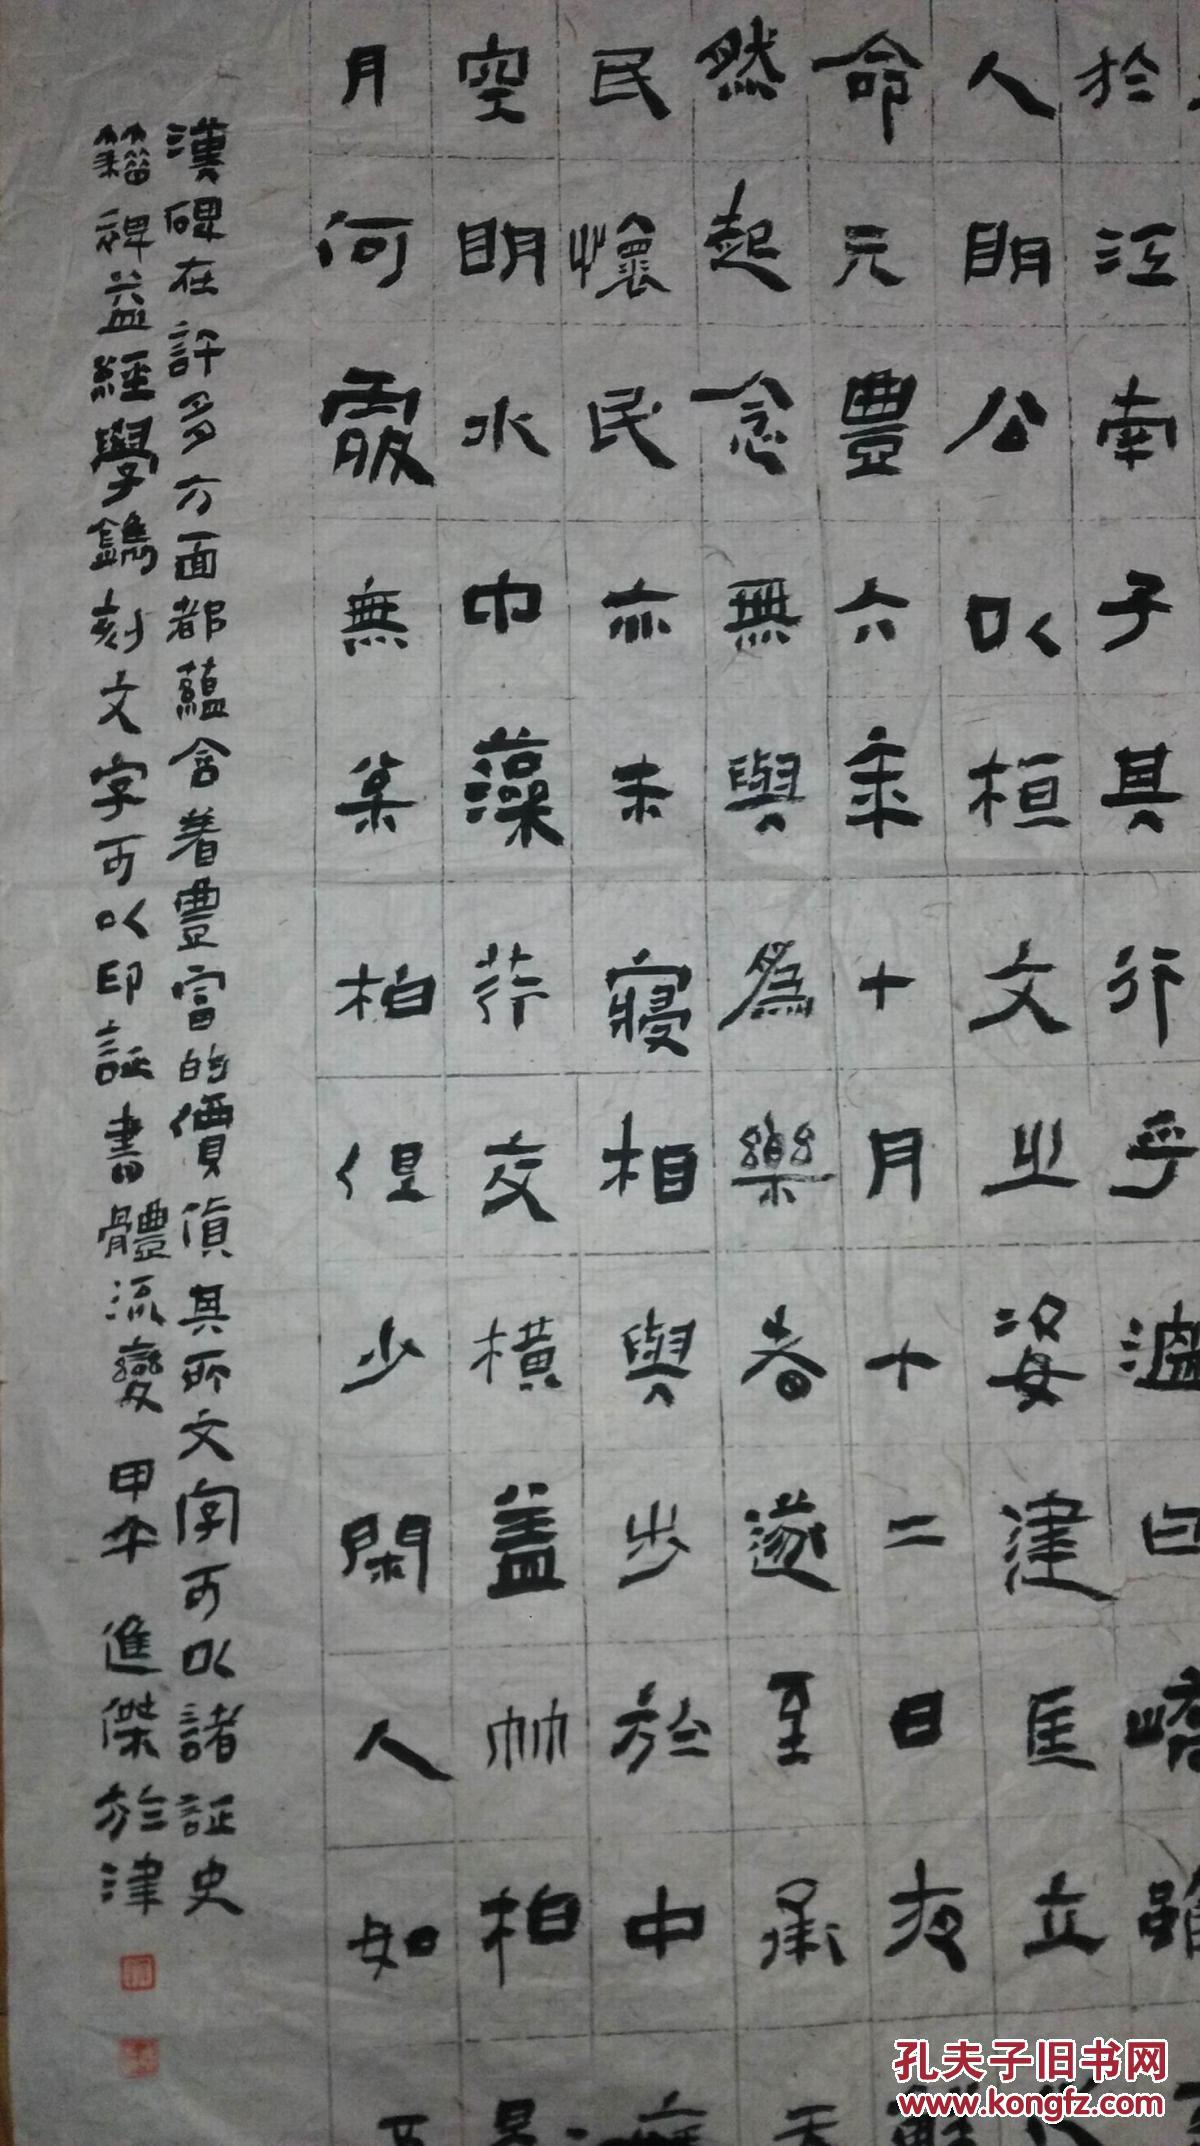 於江南子其行乎溫曰嶠雖
人明公以桓文之姿建匡立
命元豐六年十月十二日夜解
然起念無與為樂者遂至承天
民懷民亦未寢相與步於中庭
空明水中藻荇交橫蓋竹柏
月何處無某柏但少閑人如吾
漢碑在許多方面都蘊含着豐富的價值其所文字可以諸証史
籍裨益經學鐫刻文字可以印証書體流變 甲午 進傑於津
孔夫子旧书网
www.kongfz.com